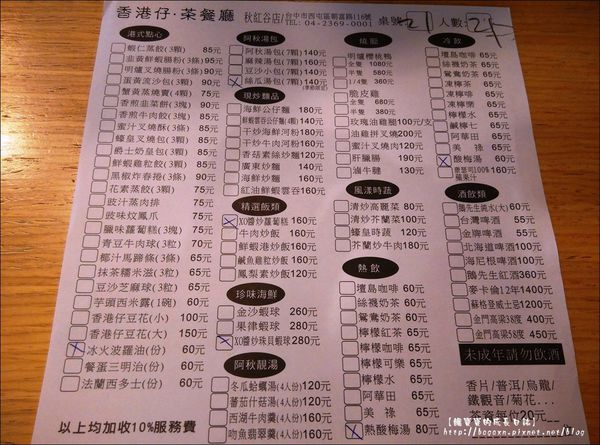 香港仔·茶餐廳
秋紅谷店/台中市西屯區朝富路116號
TEL: 04-2369-0001
桌號21 人數:
港式點心
蝦仁蒸餃(3顆) 85元
韭黃鮮蝦腸粉(3條) 95元
明爐叉燒腸粉(3條) 90元
蛋黃流沙包(3顆) 90元
蟹黃蒸燒賣(4顆) 75元
香煎韭菜餅(3塊) 90元
香港仔肉餃(3塊) 70元
蜜汁叉燒酥(3條) 75元
蠔皇叉燒包(3顆) 75元
爵士奶皇包(3顆) 75元
鮮蝦雞粒餃(3顆) 90元
黑椒炸春捲(3條) 90元
花素蒸餃(3顆) 75元
豉汁蒸肉排 75元
豉味炆鳳爪 75元
臘味蘿蔔糕(3塊) 75元
青豆牛肉球(3粒) 90元
椰汁馬蹄條(3條) 60元
抹茶糯米滋(3粒) 60元
豆沙芝麻球(3粒) 60元
芋頭西米露(1碗) 60元
香港仔豆花(小) 100元
香港仔豆花(大) 150元
冰火波羅油(份) 60元
餐蛋三明治(份) 60元
法蘭西多士(份) 60元
以上均加收10%服務費
阿秋湯包
阿秋湯包(7顆) 140元
麻辣湯包(7顆) 140元
豆沙小包(7顆) 140元
絲瓜湯包(7顆) 140元
(季節限定)
現炒麵品
海鮮公仔麵 180元
鮮蝦雲吞公仔麵(4顆) 140元
干炒海鮮河粉 180元
干炒牛肉河粉 160元
香菇素絲炒麵 120元
廣東炒麵 140元
海鮮炒麵 160元
紅油鮮蝦雲吞 160元
精選飯類
XO醬炒蘿蔔糕 160元
牛肉炒飯 160元
鮮蝦港炒飯 160元
鹹魚雞粒炒飯 160元
鳳梨素炒飯 120元
珍味海鮮
金沙蝦球 260元
果律蝦球 280元
XO醬炒珠貝蝦球 280元
阿秋靚湯
冬瓜蛤蠣湯(4人份) 120元
蕃茄什菇湯(4人份) 120元
西湖牛肉羹(4人份) 160元
吻魚翡翠羹(4人份) 160元
燒臘
明爐櫻桃鴨
全隻 1080元
半隻 580元
1/4隻 360元
脆皮雞
全隻 680元
半隻 380元
玫瑰油雞腿 100元/支
油雞拼叉燒 200元
蜜汁叉燒肉 160元
肝臘腸 190元
滷牛腱 130元
風漾時蔬
清炒高麗菜 80元
清炒芥蘭菜 100元
蠔皇時蔬 120元
芥蘭炒牛肉 180元
熱飲
壇島咖啡 60元
絲襪奶茶 60元
鴛鴦奶茶 60元
檸檬紅茶 60元
檸檬咖啡 60元
檸檬可樂 60元
檸檬水 60元
阿華田 60元
美祿 60元
熱酸梅湯 60元
冷飲
壇島咖啡 65元
絲襪奶茶 65元
鴛鴦奶茶 65元
凍檸茶 65元
凍檸啡 65元
凍檸樂 65元
檸檬水 65元
鹹檸七 65元
阿華田 65元
美祿 65元
酸梅湯 60元
酒飲類
鵝先生純水(大) 60元
台灣啤酒 55元
金牌啤酒 55元
北海道啤酒 100元
海尼根啤酒 100元
鵝先生紅酒 360元
麥卡倫12年 1400元
蘇格登威士忌 1200元
金門高粱38度 400元
金門高粱58度 450元
未成年請勿飲酒
香片/普洱/烏龍/
鐵觀音/菊花...
茶資每位20元